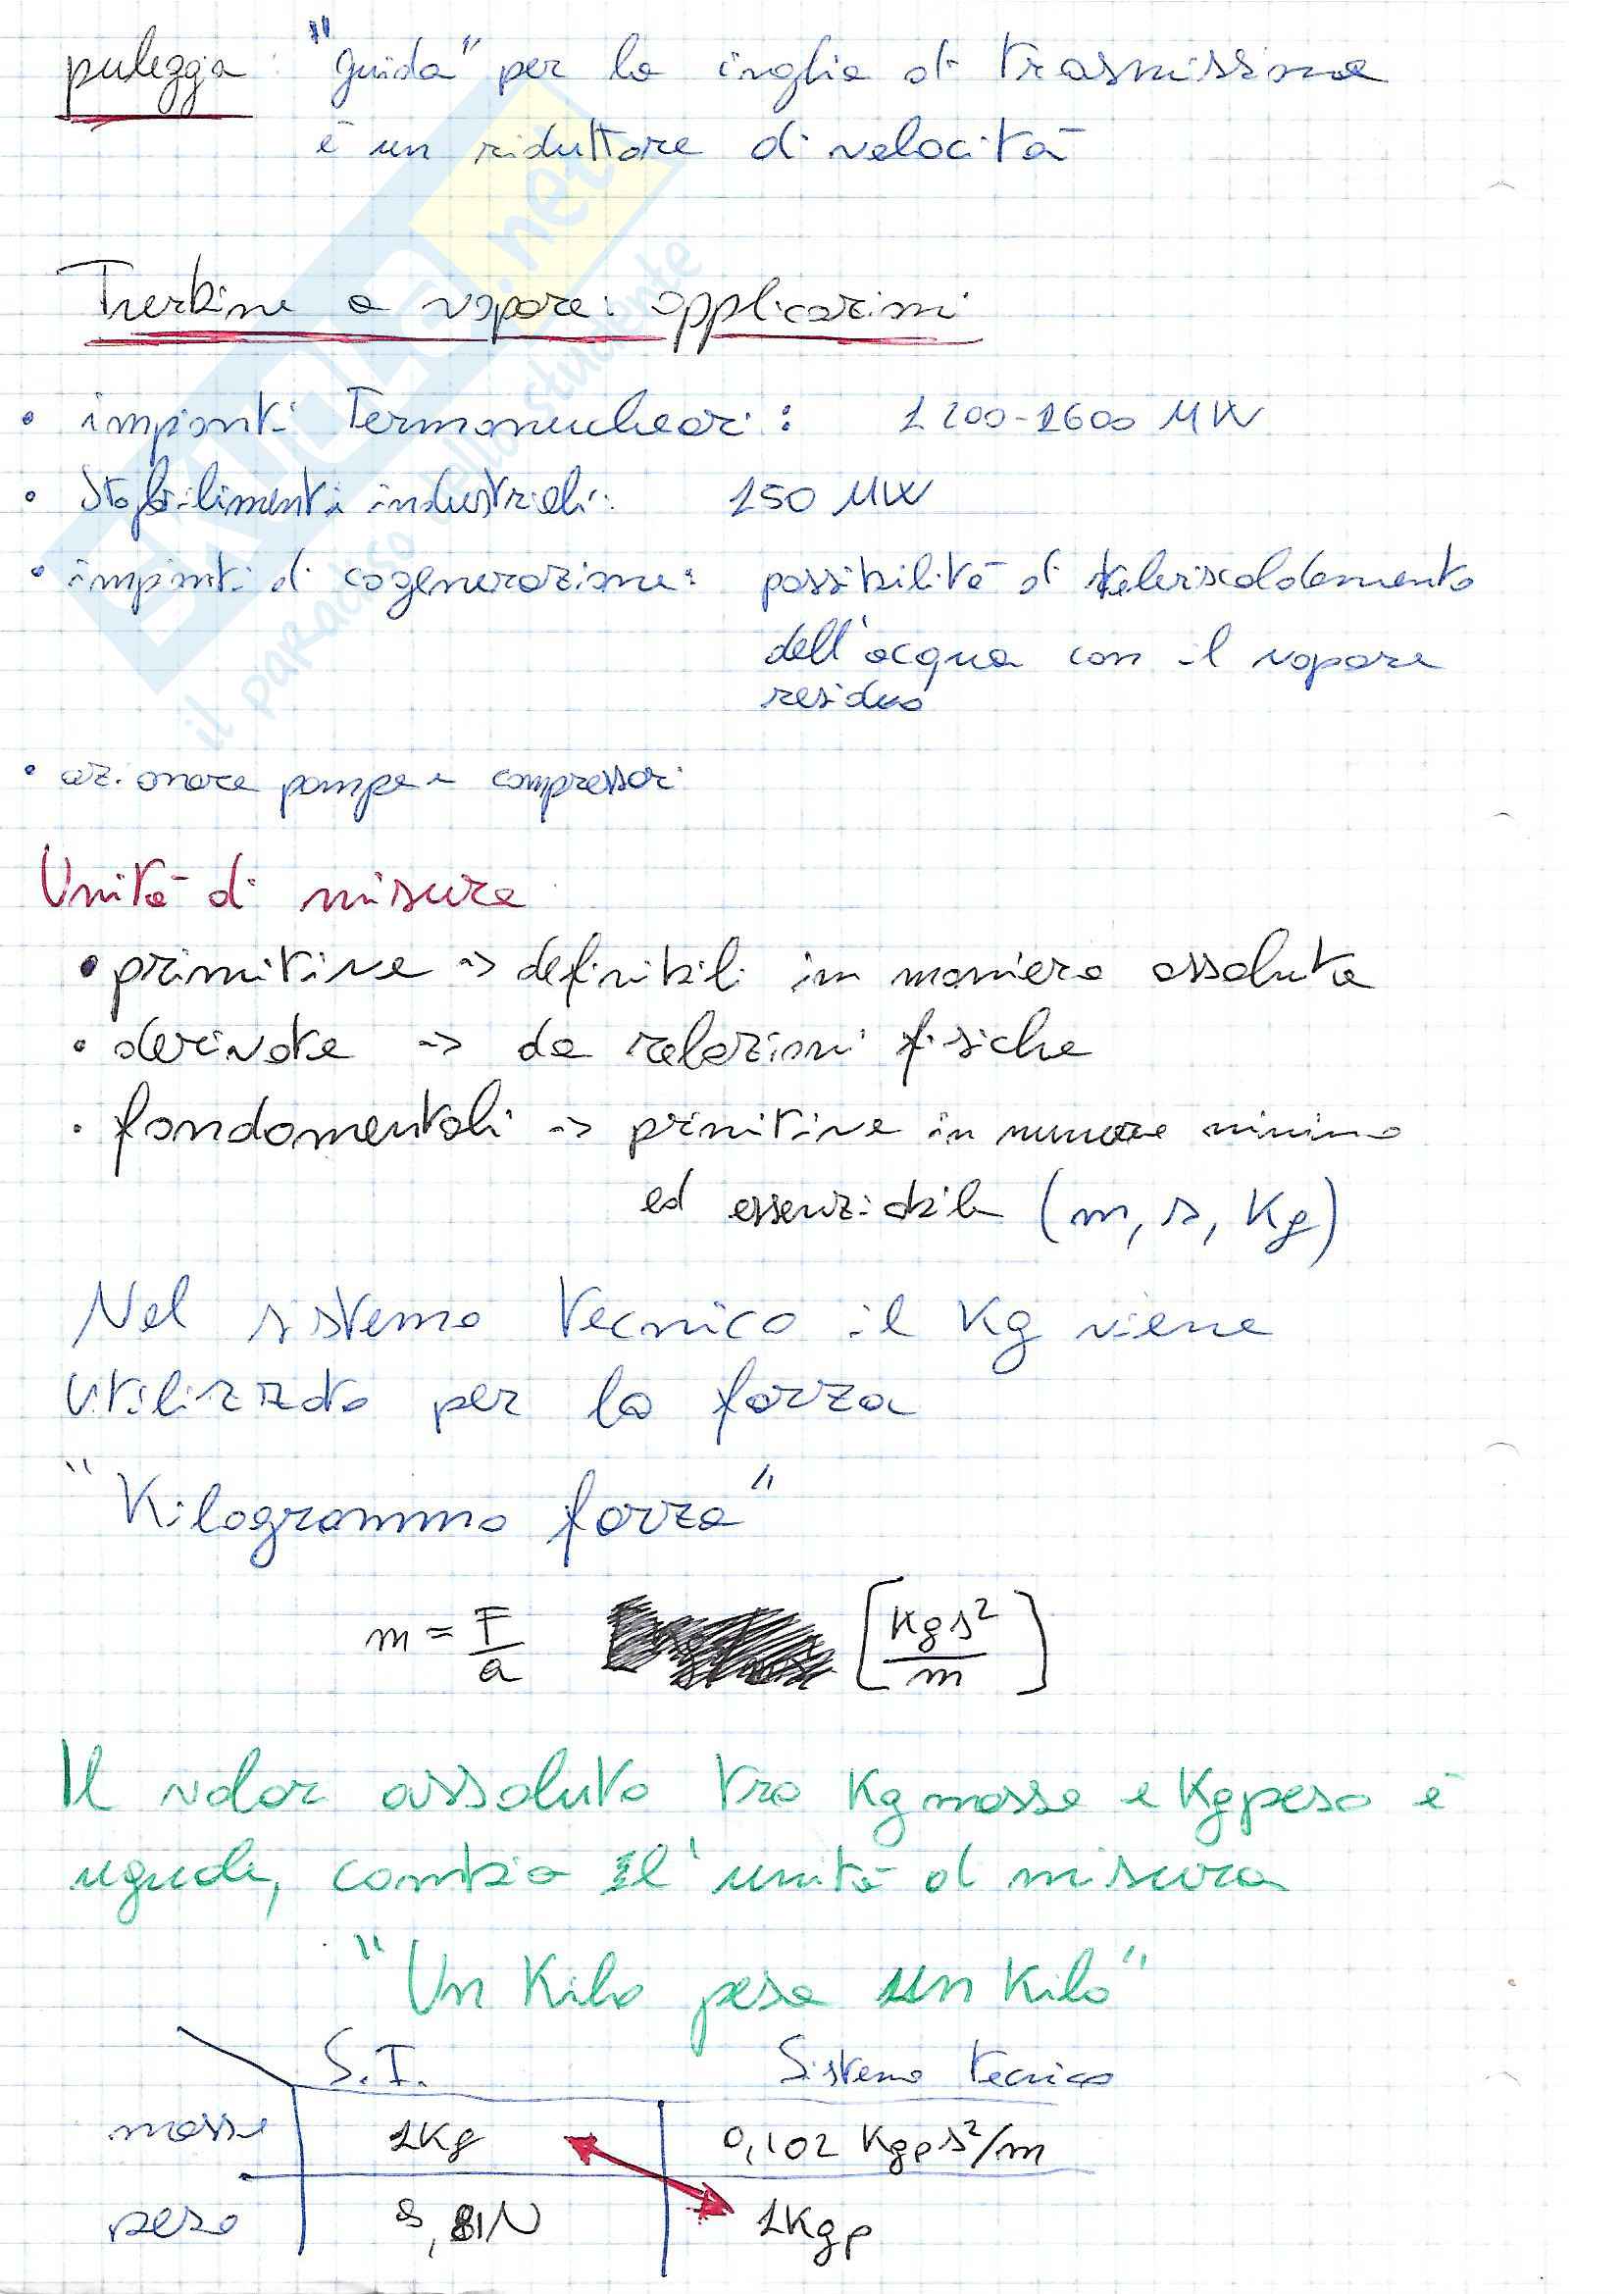 pulegga: "guida" per la cinghia di trasmissione
è un riduttore di velocità
Turbine a vapore: applicazioni
• impianti termonucleari: 1200-1600 MW
• Stabilimenti industriali: 150 MW
• impianti di cogenerazione: possibilità di teleriscaldamento
dell'acqua con il vapore
residuo
• azionare pompe e compressori
Unità di misura
• primitive => definibili in maniera assoluta
• derivate => da relazioni fisiche
• fondamentali => primitive in numero minimo
ed (m, s, Kg)
Nel sistema tecnico il Kg viene
utilizzato per la forza
"Kilogrammo forza"
m = F/a [Kg s²/m]
Il valor assoluto tra Kg massa e Kg peso è
uguale, cambia l'unità di misura
"Un Kilo pesa un Kilo"
S.I. Sistema tecnico
massa 1Kg 0,102 Kgp s²/m
peso 9,81N 1Kgp
EXAMLO.net
il paradiso dello studente